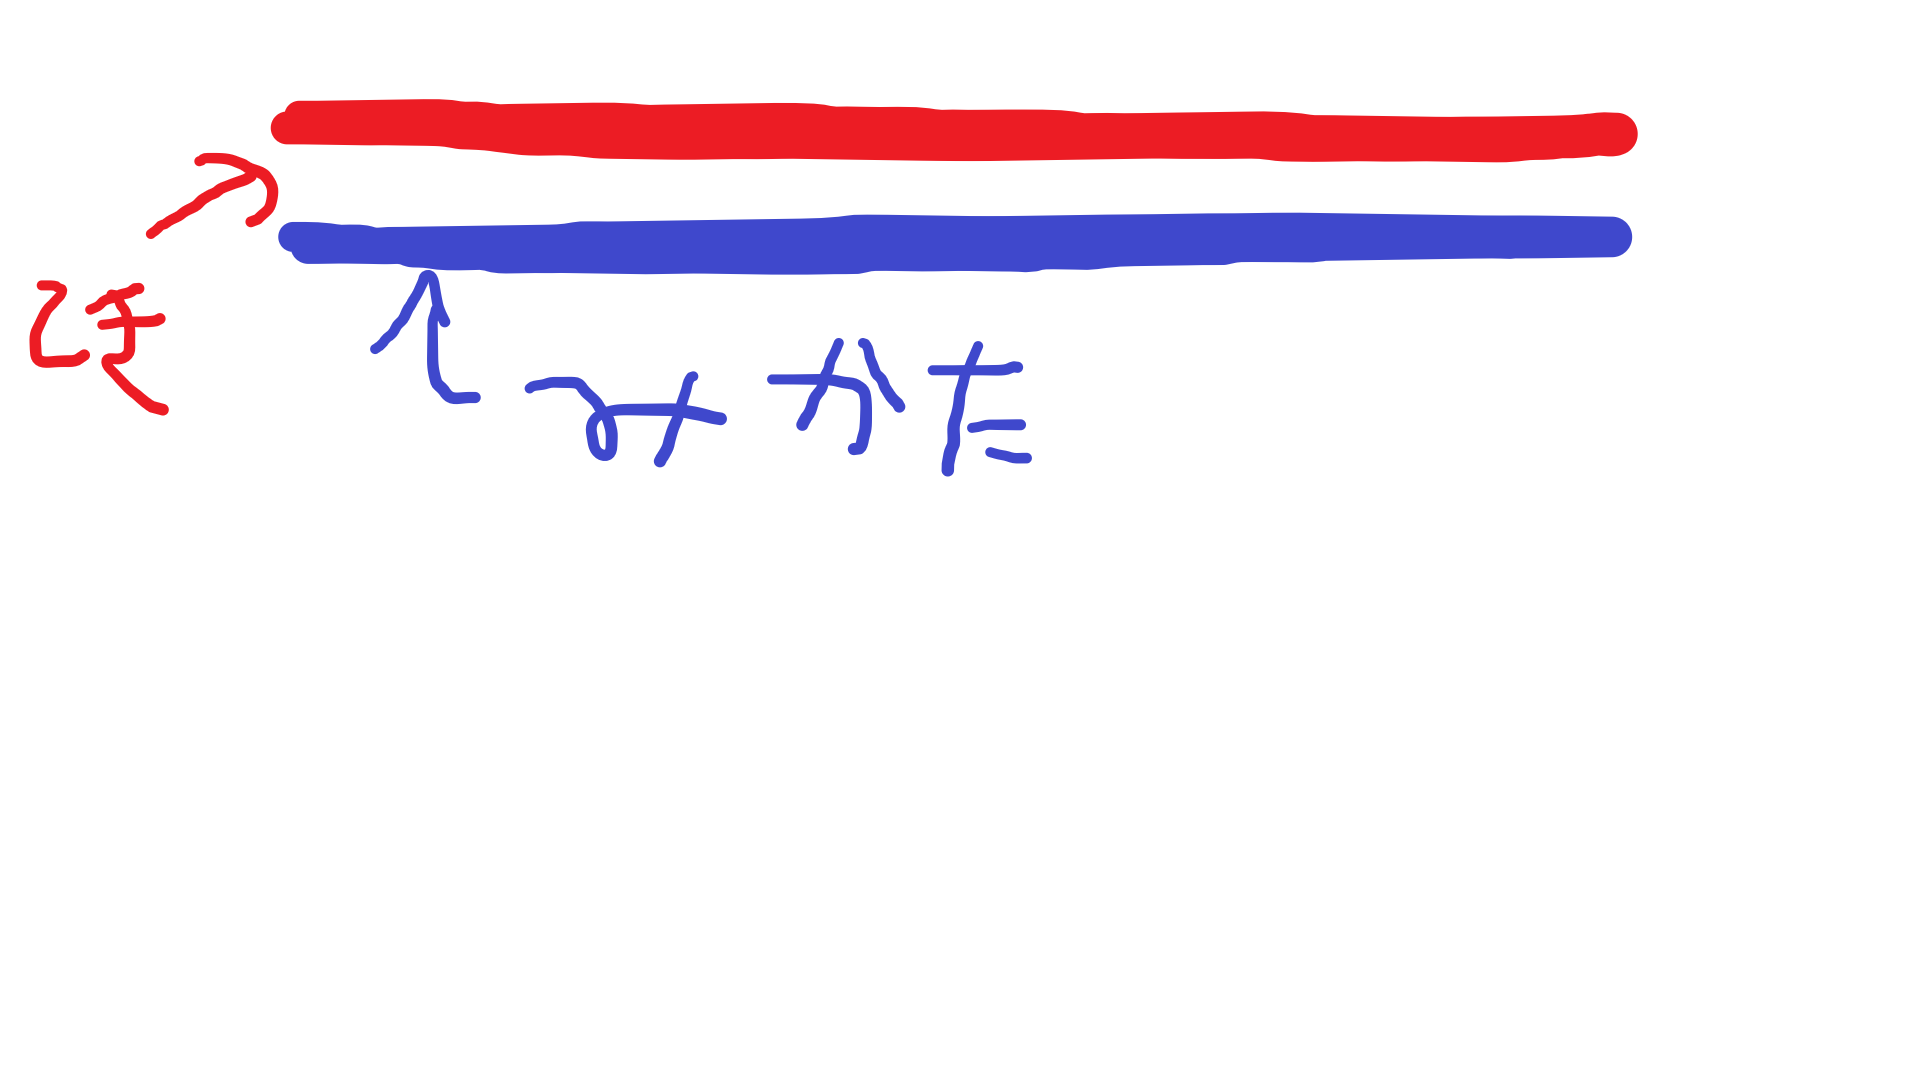 てき
みかた